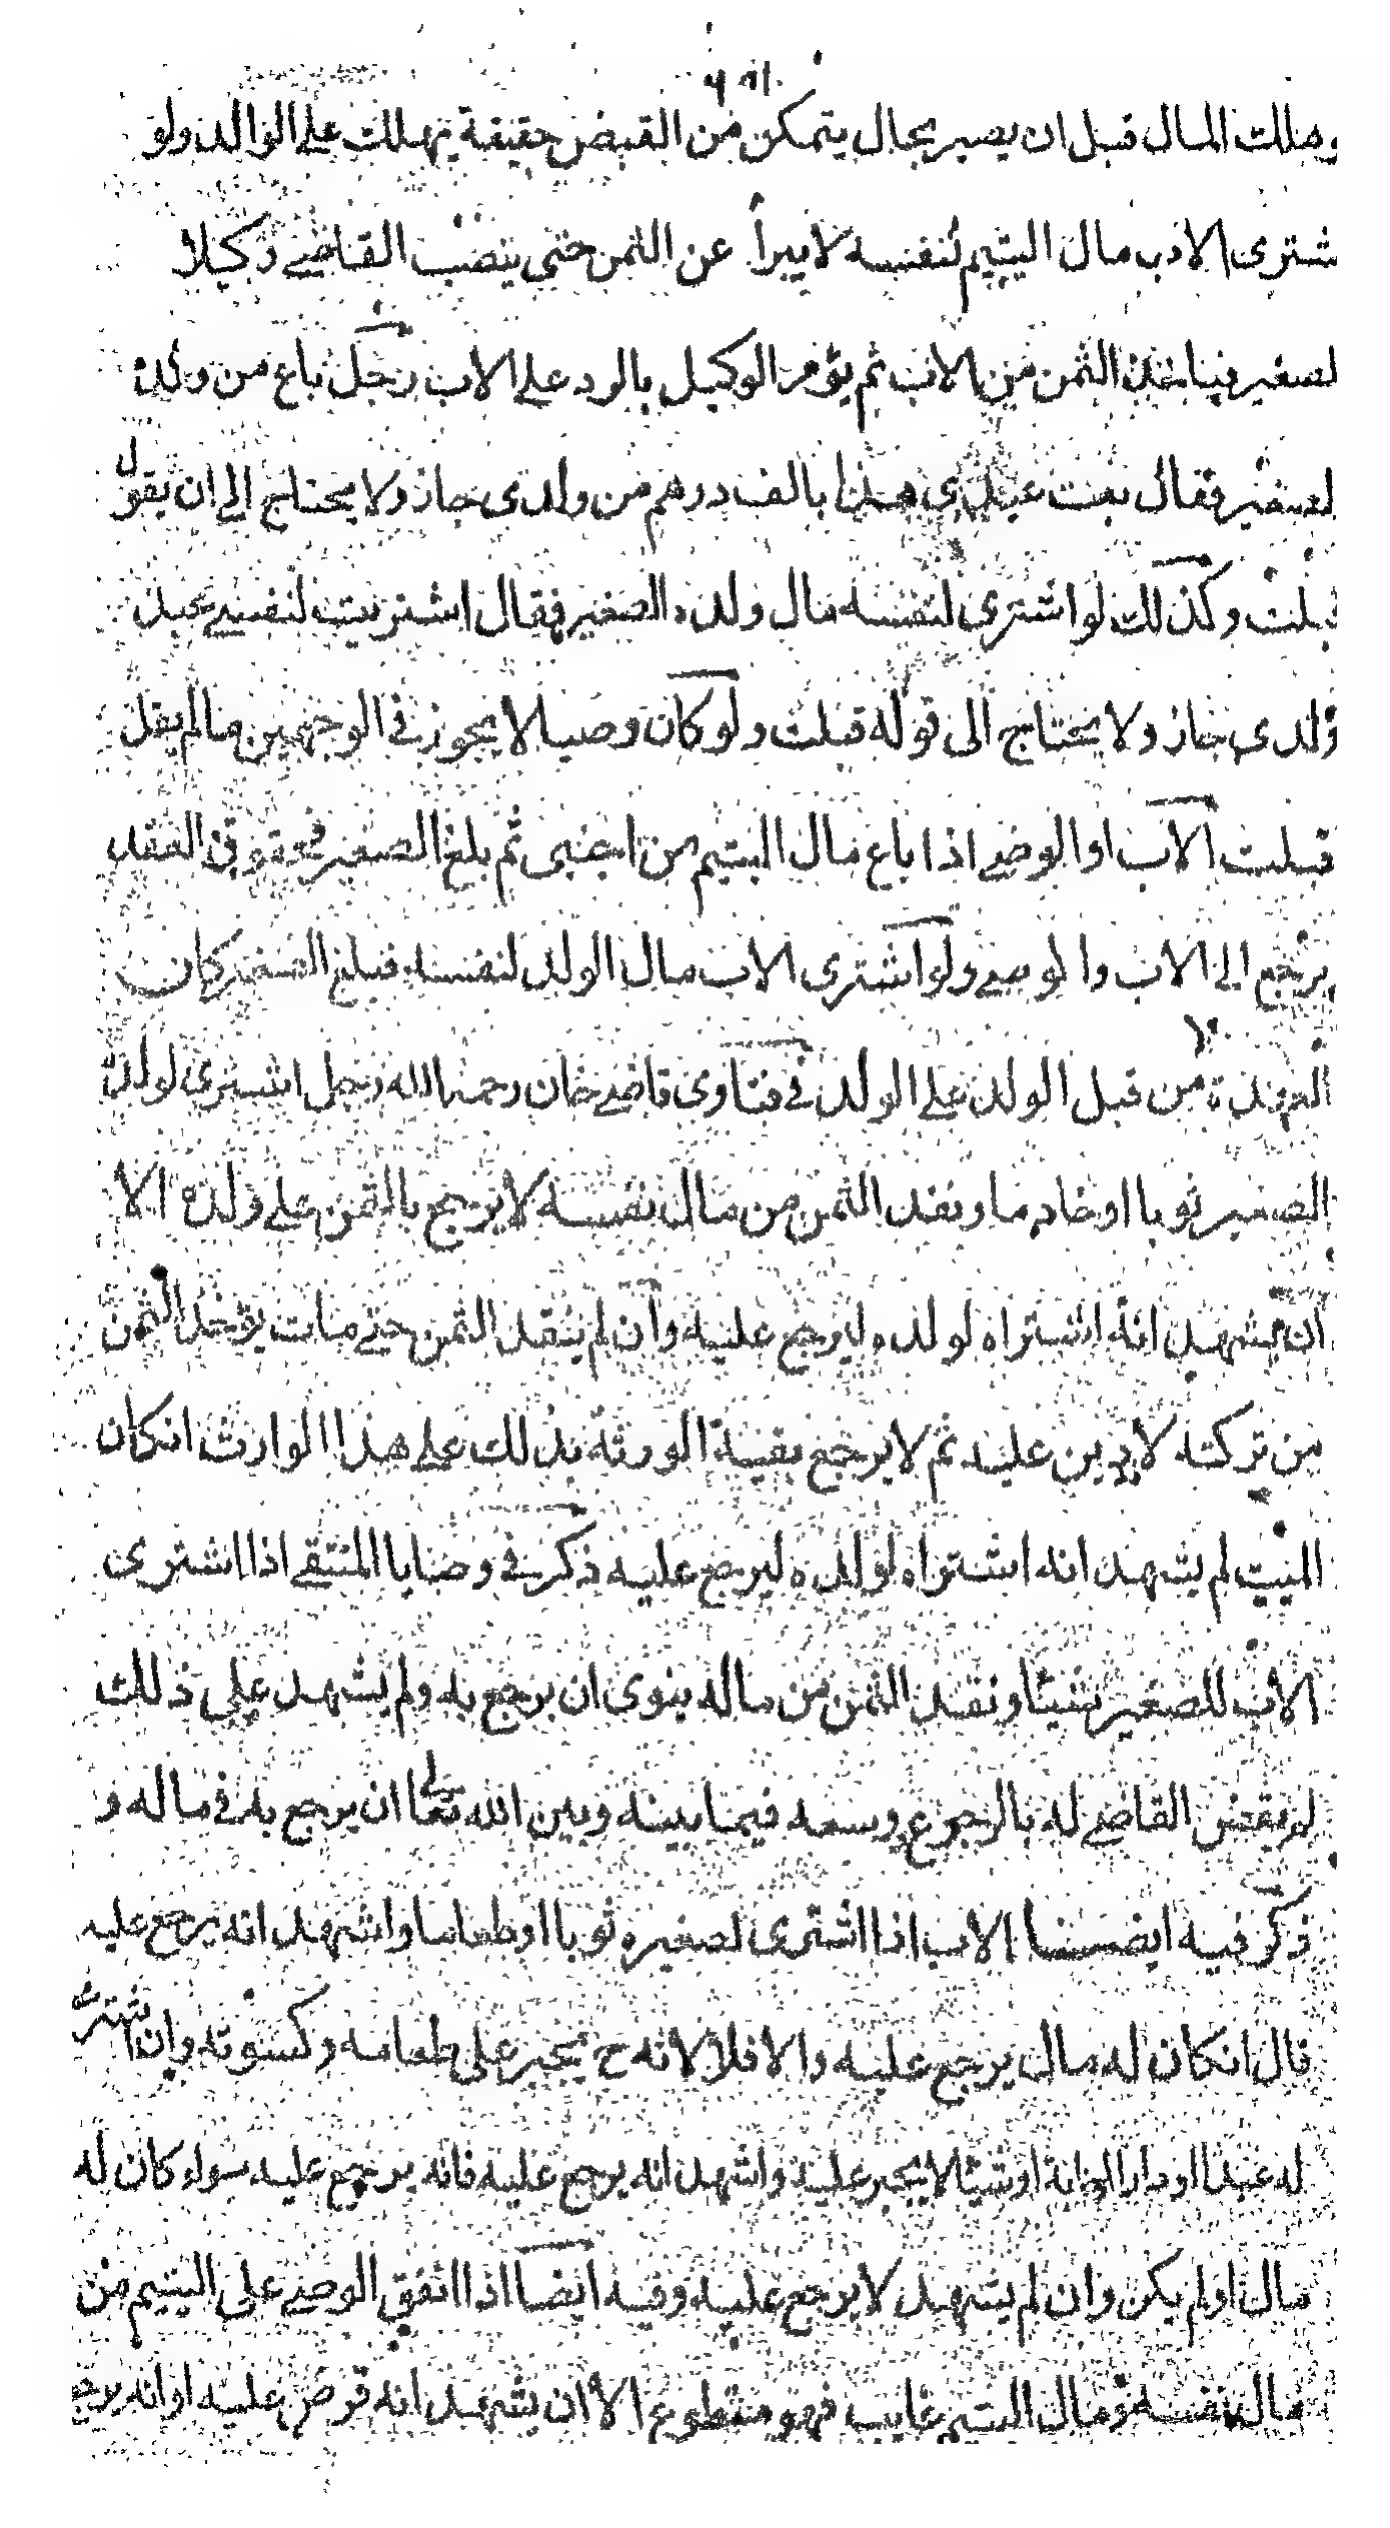 وهلك المال قبل ان يصير بحال يتمكن من القبض حقيقة يهلك على الوالد ولو
اشترى الاب مال اليتيم لنفسه لا يبرأ عن الثمن حتى ينصب القاضي وكيلا
لصغير فياخذ الثمن من الاب ثم يؤمر الوكيل بالرد على الاب رجل باع من ولده
لصغير فقال بعت عبدى هذا بالف درهم من ولدى جاز ولا يحتاج الى ان يقول
قبلت وكذلك لو اشترى لنفسه مال ولده الصغير فقال اشتريت لنفسي عبد
ولدى جاز ولا يحتاج الى قوله قبلت ولو كان وصيا لا يجوز في الوجهين ما لم يقل
قبلت الاب او الوصي اذا باع مال اليتيم من اجنبى ثم بلغ الصغير فحقوق العقد
يرجع الى الاب والوصي ولو اشترى الاب مال الولد لنفسه فبلغ الصغير كان
العهدة من قبل الولد على الولد في فتاوى قاضي خان رحمه الله رجل اشترى لولده
الصغير ثوبا او خادما ونقد الثمن من مال نفسه لا يرجع بالثمن على ولده الا
ان يشهد انه اشتراه لولده ليرجع عليه وان لم ينقد الثمن حتى مات يؤخذ الثمن
من تركته لا دين عليه ثم لا يرجع بقية الورثة بذلك على هذا الوارث انكان
الميت لم يشهد انه اشتراه لولده ليرجع عليه ذكر في وصايا المنتقى اذا اشترى
الاب للصغير شيئا ونقد الثمن من ماله ينوى ان يرجع به ولم يشهد على ذلك
لم يقض القاضي له بالرجوع ويسعه فيما بينه وبين الله تعالى ان يرجع به في ماله و
ذكر فيه ايضا الاب اذا اشترى لصغيره ثوبا او طعاما واشهد انه يرجع عليه
قال انكان له مال يرجع عليه والا فلا لانه ح يجبر على طعامه وكسوته وان اشترى
له عبدا او دارا او شيئا لا يجبر عليه واشهد انه يرجع عليه فانه يرجع عليه سواء كان له
مال او لم يكن وان لم يشهد لا يرجع عليه وفيه ايضا اذا انفق الوصي على اليتيم من
مال نفسه ومال اليتيم غايب فهو متطوع الا ان يشهد انه قرض عليه او انه يرجع